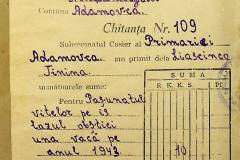 Comuna Adamovca
Chitanța Nr. 109
Subsemnatul Casier al Primăriei
Adamovca am primit dela
Jinina
SUMA
următoarele sume:
R. K. K. S. Pf.
Pentru Pașunatul
vitelor pe is
lazul obștiei
una vacă pe
anul 1943 10